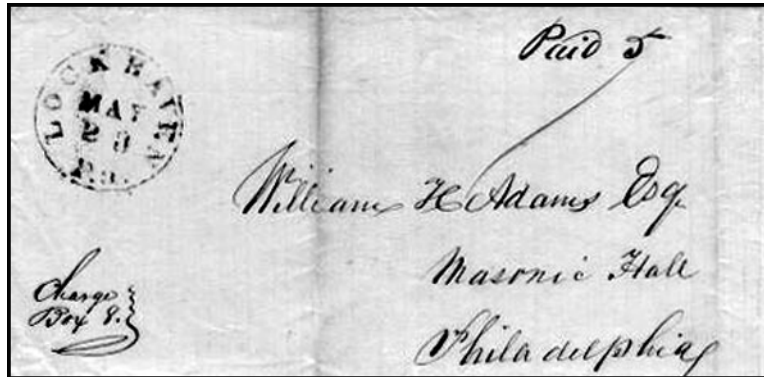 Paid 5
LOCK HAVEN
MAY
23
Pa.
William H Adams Esq.
Masonic Hall
Philadelphia
Charge
Box 8.